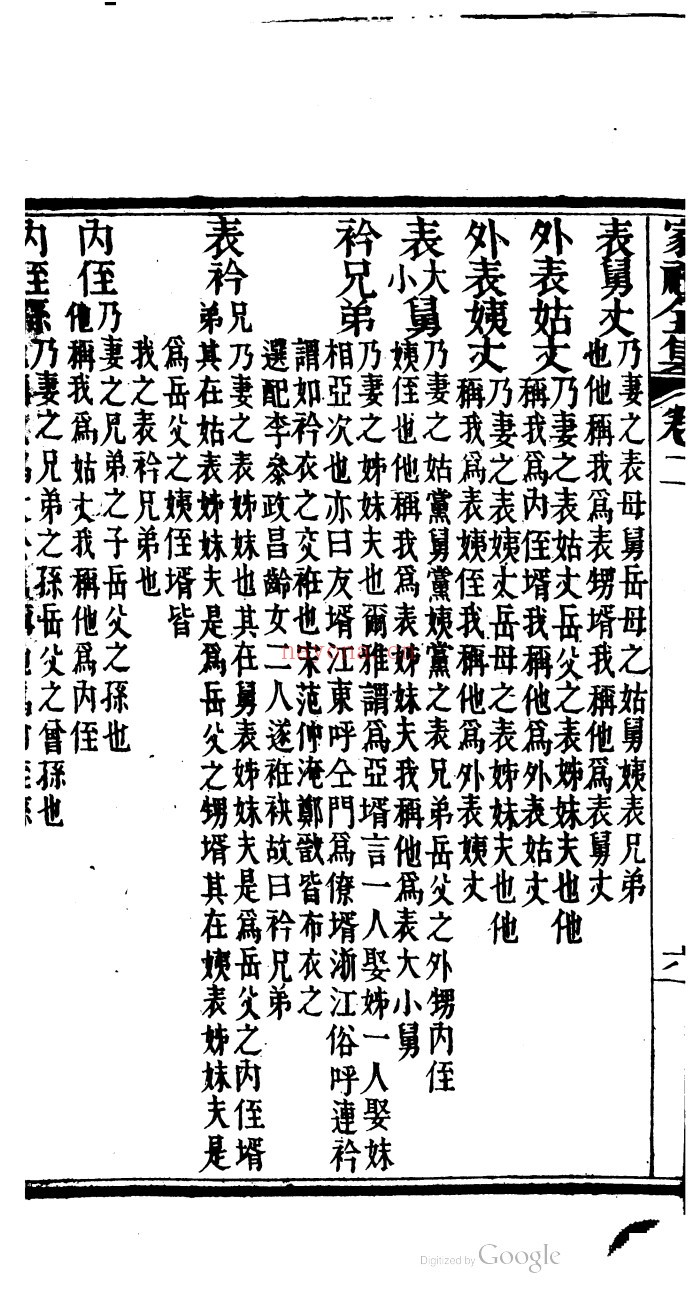 家禮全集 卷二
六
表舅丈 乃妻之表母舅岳母之姑舅姨表兄弟
也他稱我爲表甥壻我稱他爲表舅丈
外表姑丈 乃妻之表姑丈岳父之表姊妹夫也他
稱我爲內侄壻我稱他爲外表姑丈
外表姨丈 乃妻之表姨丈岳母之表姊妹夫也他
稱我爲表姨侄我稱他爲外表姨丈
表大小舅 乃妻之姑黨舅黨姨黨之表兄弟岳父之外甥內侄
姨侄也他稱我爲表姊妹夫我稱他爲表大小舅
衿兄弟 乃妻之姊妹夫也爾雅謂爲亞壻言一人娶姊一人娶妹
相亞次也亦曰友壻江東呼仝門爲僚壻浙江俗呼連衿
謂如衿衣之交袵也宋范仲淹鄭戩皆布衣之
選配李參政昌齡女二人遂袵袂故曰衿兄弟
表衿兄弟 乃妻之表姊妹也其在舅表姊妹夫是爲岳父之內侄壻
其在姑表姊妹夫是爲岳父之甥壻其在姨表姊妹夫是
爲岳父之姨侄壻皆
我之表衿兄弟也
內侄 乃妻之兄弟之子岳父之孫也
他稱我爲姑丈我稱他爲內侄
內侄孫 乃妻之兄弟之孫岳父之曾孫也
nayona.cn
Digitized by Google